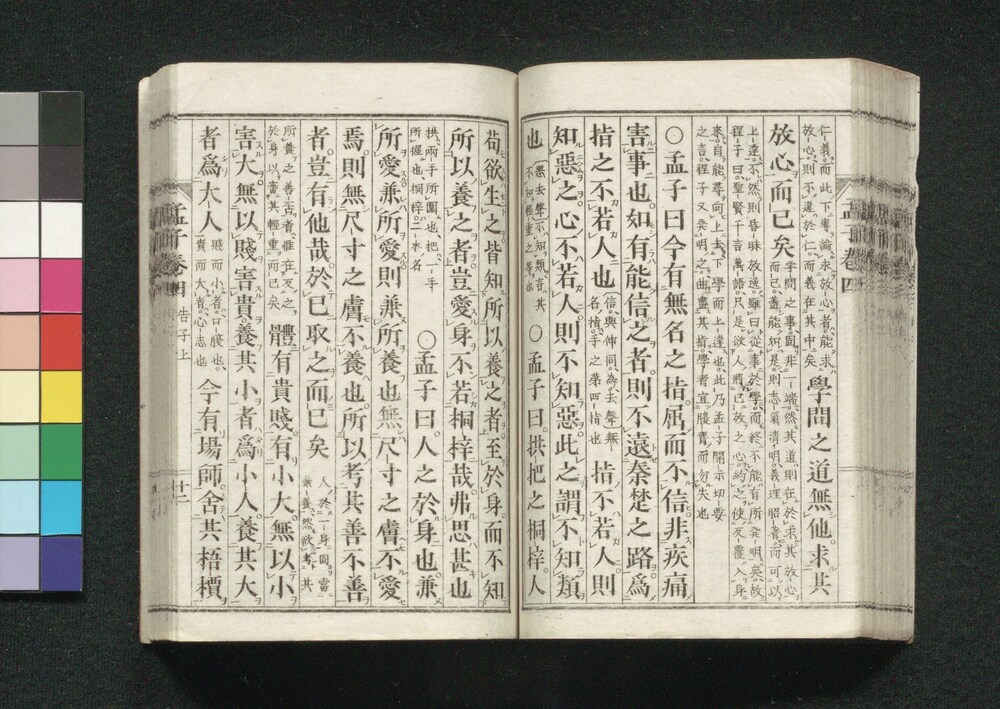 仁義而此下專論求放心者能求
放心則不違於仁而義在其中矣
學問之道無他求其
放心而已矣
學問之事固非一端然其道則在於求其放心
而已蓋能如是則志氣清明義理昭著而可以
上達不然則昏昧放逸雖曰從事於學而終不能有所發明矣故
程子曰聖賢千言萬語只是欲人將已放之心約之使反覆入身
來自能尋向上去下學而上達也此乃孟子開示切要
之言程子又發明之曲盡其指學者宜服膺而勿失也
○孟子曰今有無名之指屈而不信非疾痛
害事也如有能信之者則不遠秦楚之路爲
指之不若人也
信與伸同爲去聲無
名指手之第四指也
指不若人則
知惡之心不若人則不知惡此之謂不知類
也
惡去聲不知類言其
不知輕重之等也
○孟子曰拱把之桐梓人
孟子卷四
苟欲生之皆知所以養之者至於身而不知
所以養之者豈愛身不若桐梓哉弗思甚也
拱兩手所圍也把一手
所握也桐梓二木名
○孟子曰人之於身也兼
所愛兼所愛則兼所養也無尺寸之膚不愛
焉則無尺寸之膚不養也所以考其善不善
者豈有他哉於己取之而已矣
人於一身固當
兼養然欲考其
所養之善否者惟在反之
於身以審其輕重而已矣
體有貴賤有小大無以小
害大無以賤害貴養其小者爲小人養其大
者爲大人
賤而小者口腹也
貴而大者心志也
今有場師舍其梧檟
孟子卷四 告子上 十二